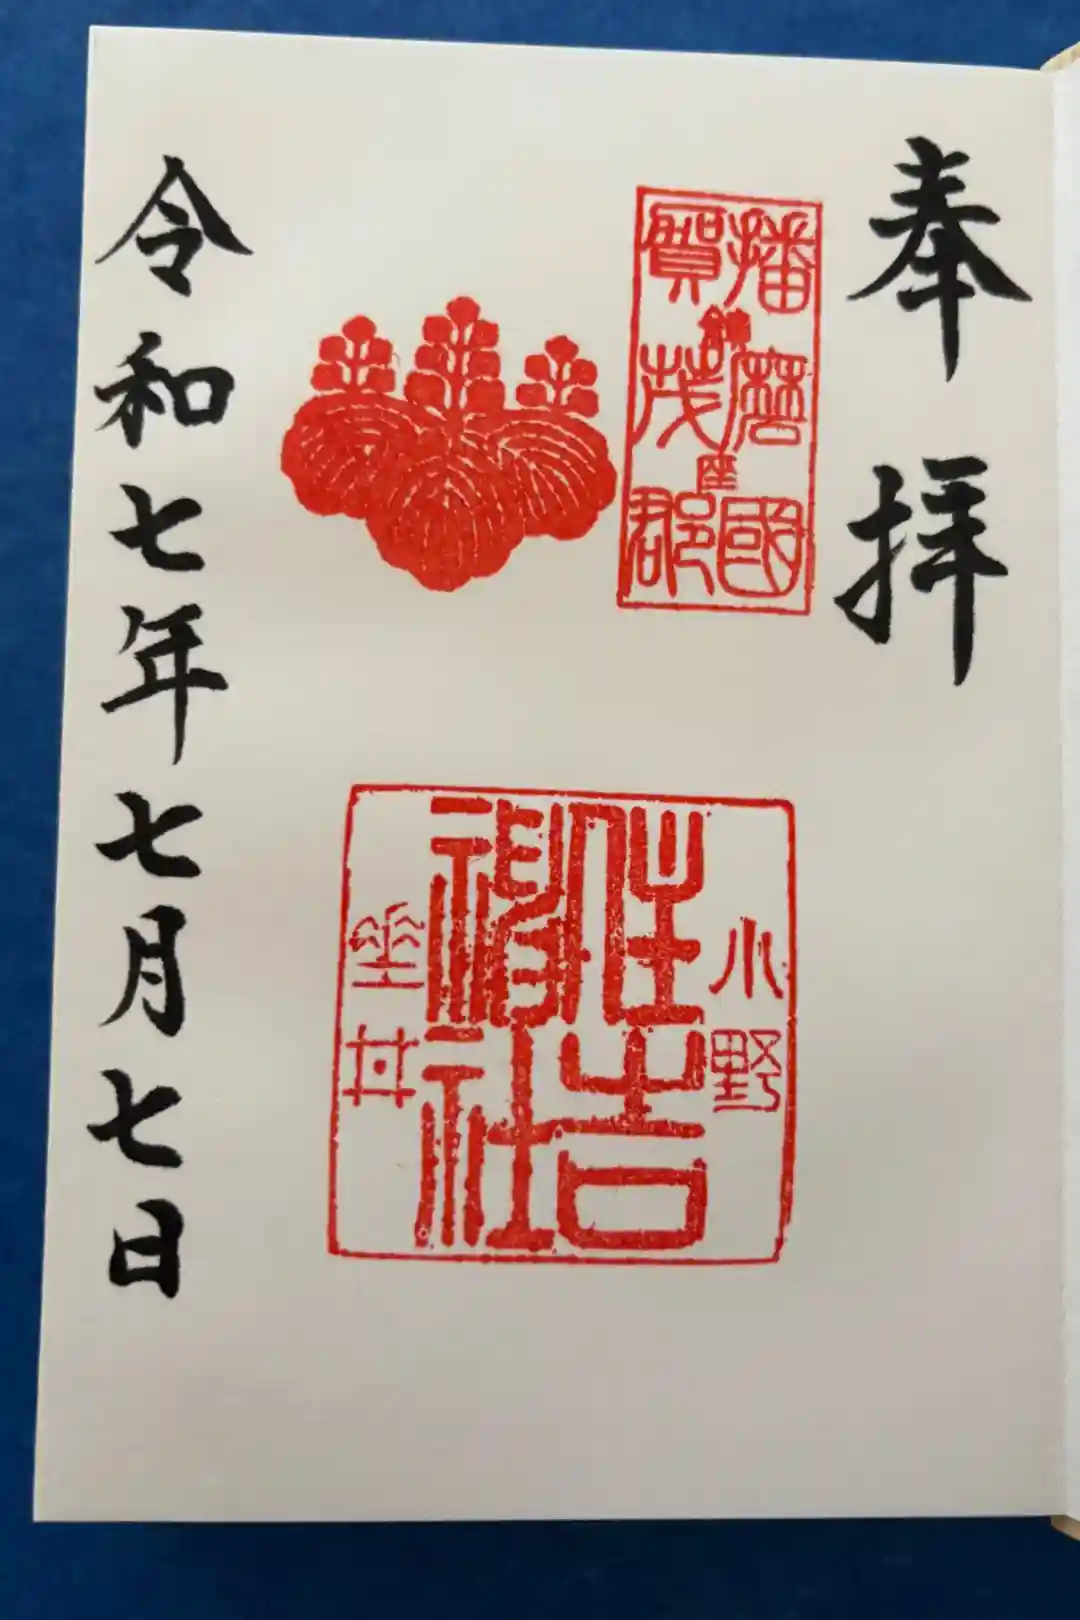 奉拝
播磨國
鎮座
賀茂郡
小野
住吉
神社
垂井
令和七年七月七日